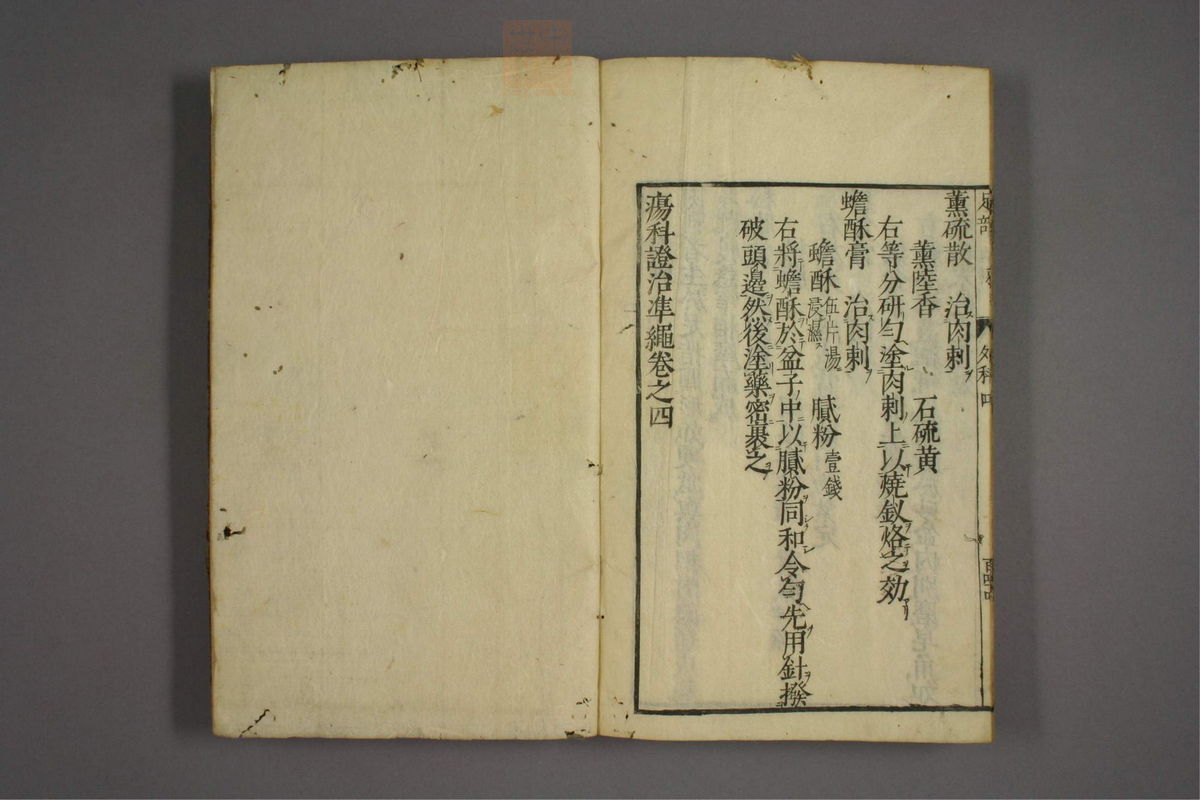 足部　外科四
薫硫散　治肉刺
薫陸香　石硫黄
右等分研勻塗肉刺上以燒釵烙之効
蟾酥膏　治肉刺
蟾酥伍片湯浸濕　膩粉壹錢
右將蟾酥於盆子中以膩粉同和令勻先用針撥
破頭邉然後塗藥密裹之
瘍科證治凖繩卷之四